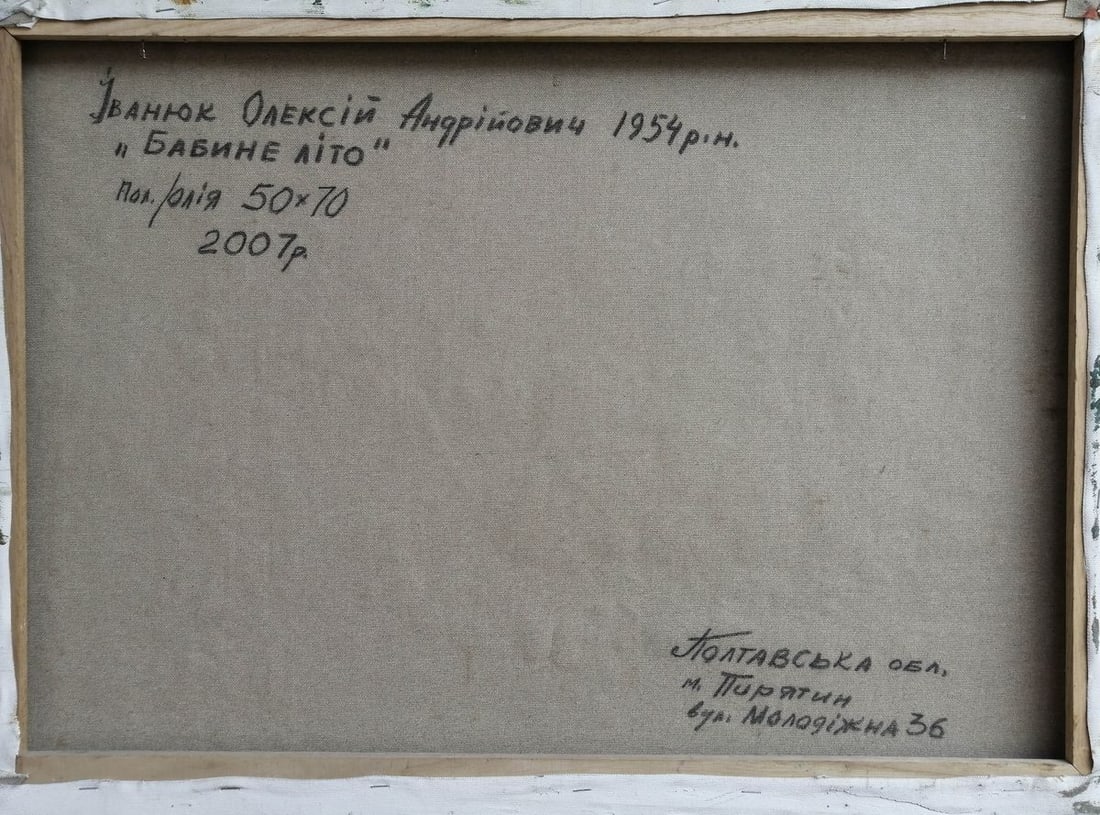 Іванюк Олексій Андрійович 1954 р.н.
„Бабине літо"
Пол./олія 50×70
2007р.
Полтавська обл.
м. Пирятин
вул. Молодіжна 36